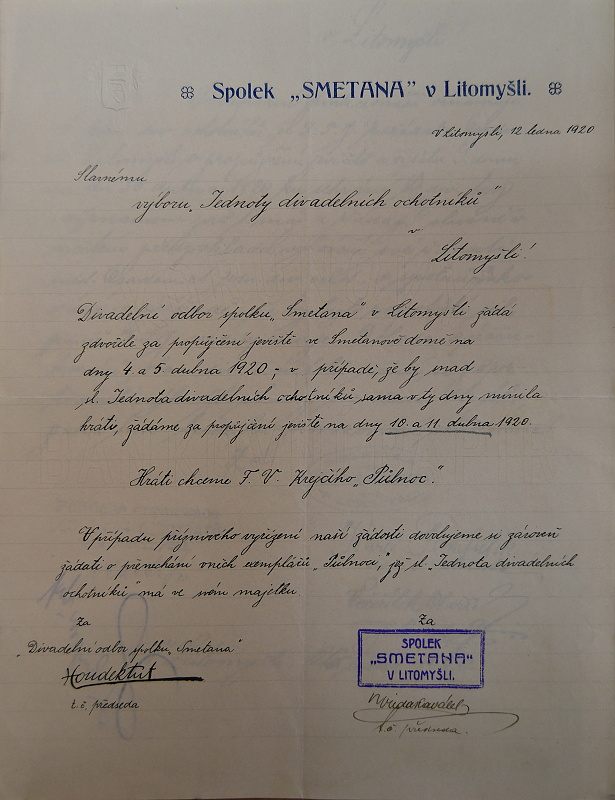 Spolek „SMETANA" v Litomyšli.
V Litomyšli, 12 ledna 1920.
Slavnému
výboru „Jednoty divadelních ochotníků"
v
Litomyšli!
Divadelné odbor spolku „Smetana" v Litomyšli žádá
zdvořile za propůjčení jeviště ve Smetanově domě na
dny 4 a 5. dubna 1920; v případě, že by snad
sl. Jednota divadelních ochotníků sama v ty dny mínila
hráti, žádáme za propůjčení jeviště na dny 10. a 11 dubna 1920.
Hráti chceme F. V. Krejčího „Půlnoc".
V případu příznivého vyřízení naší žádosti dovolujeme si zároveň
žádati o přenechání vnich exemplářů „Půlnoci", jež sl. „Jednota divadelních
ochotníků" má ve svém majetku.
Za
„Divadelní odbor spolku „Smetana"
t. č. předseda
Za
SPOLEK
„SMETANA"
V LITOMYŠLI.
t. č. předseda.